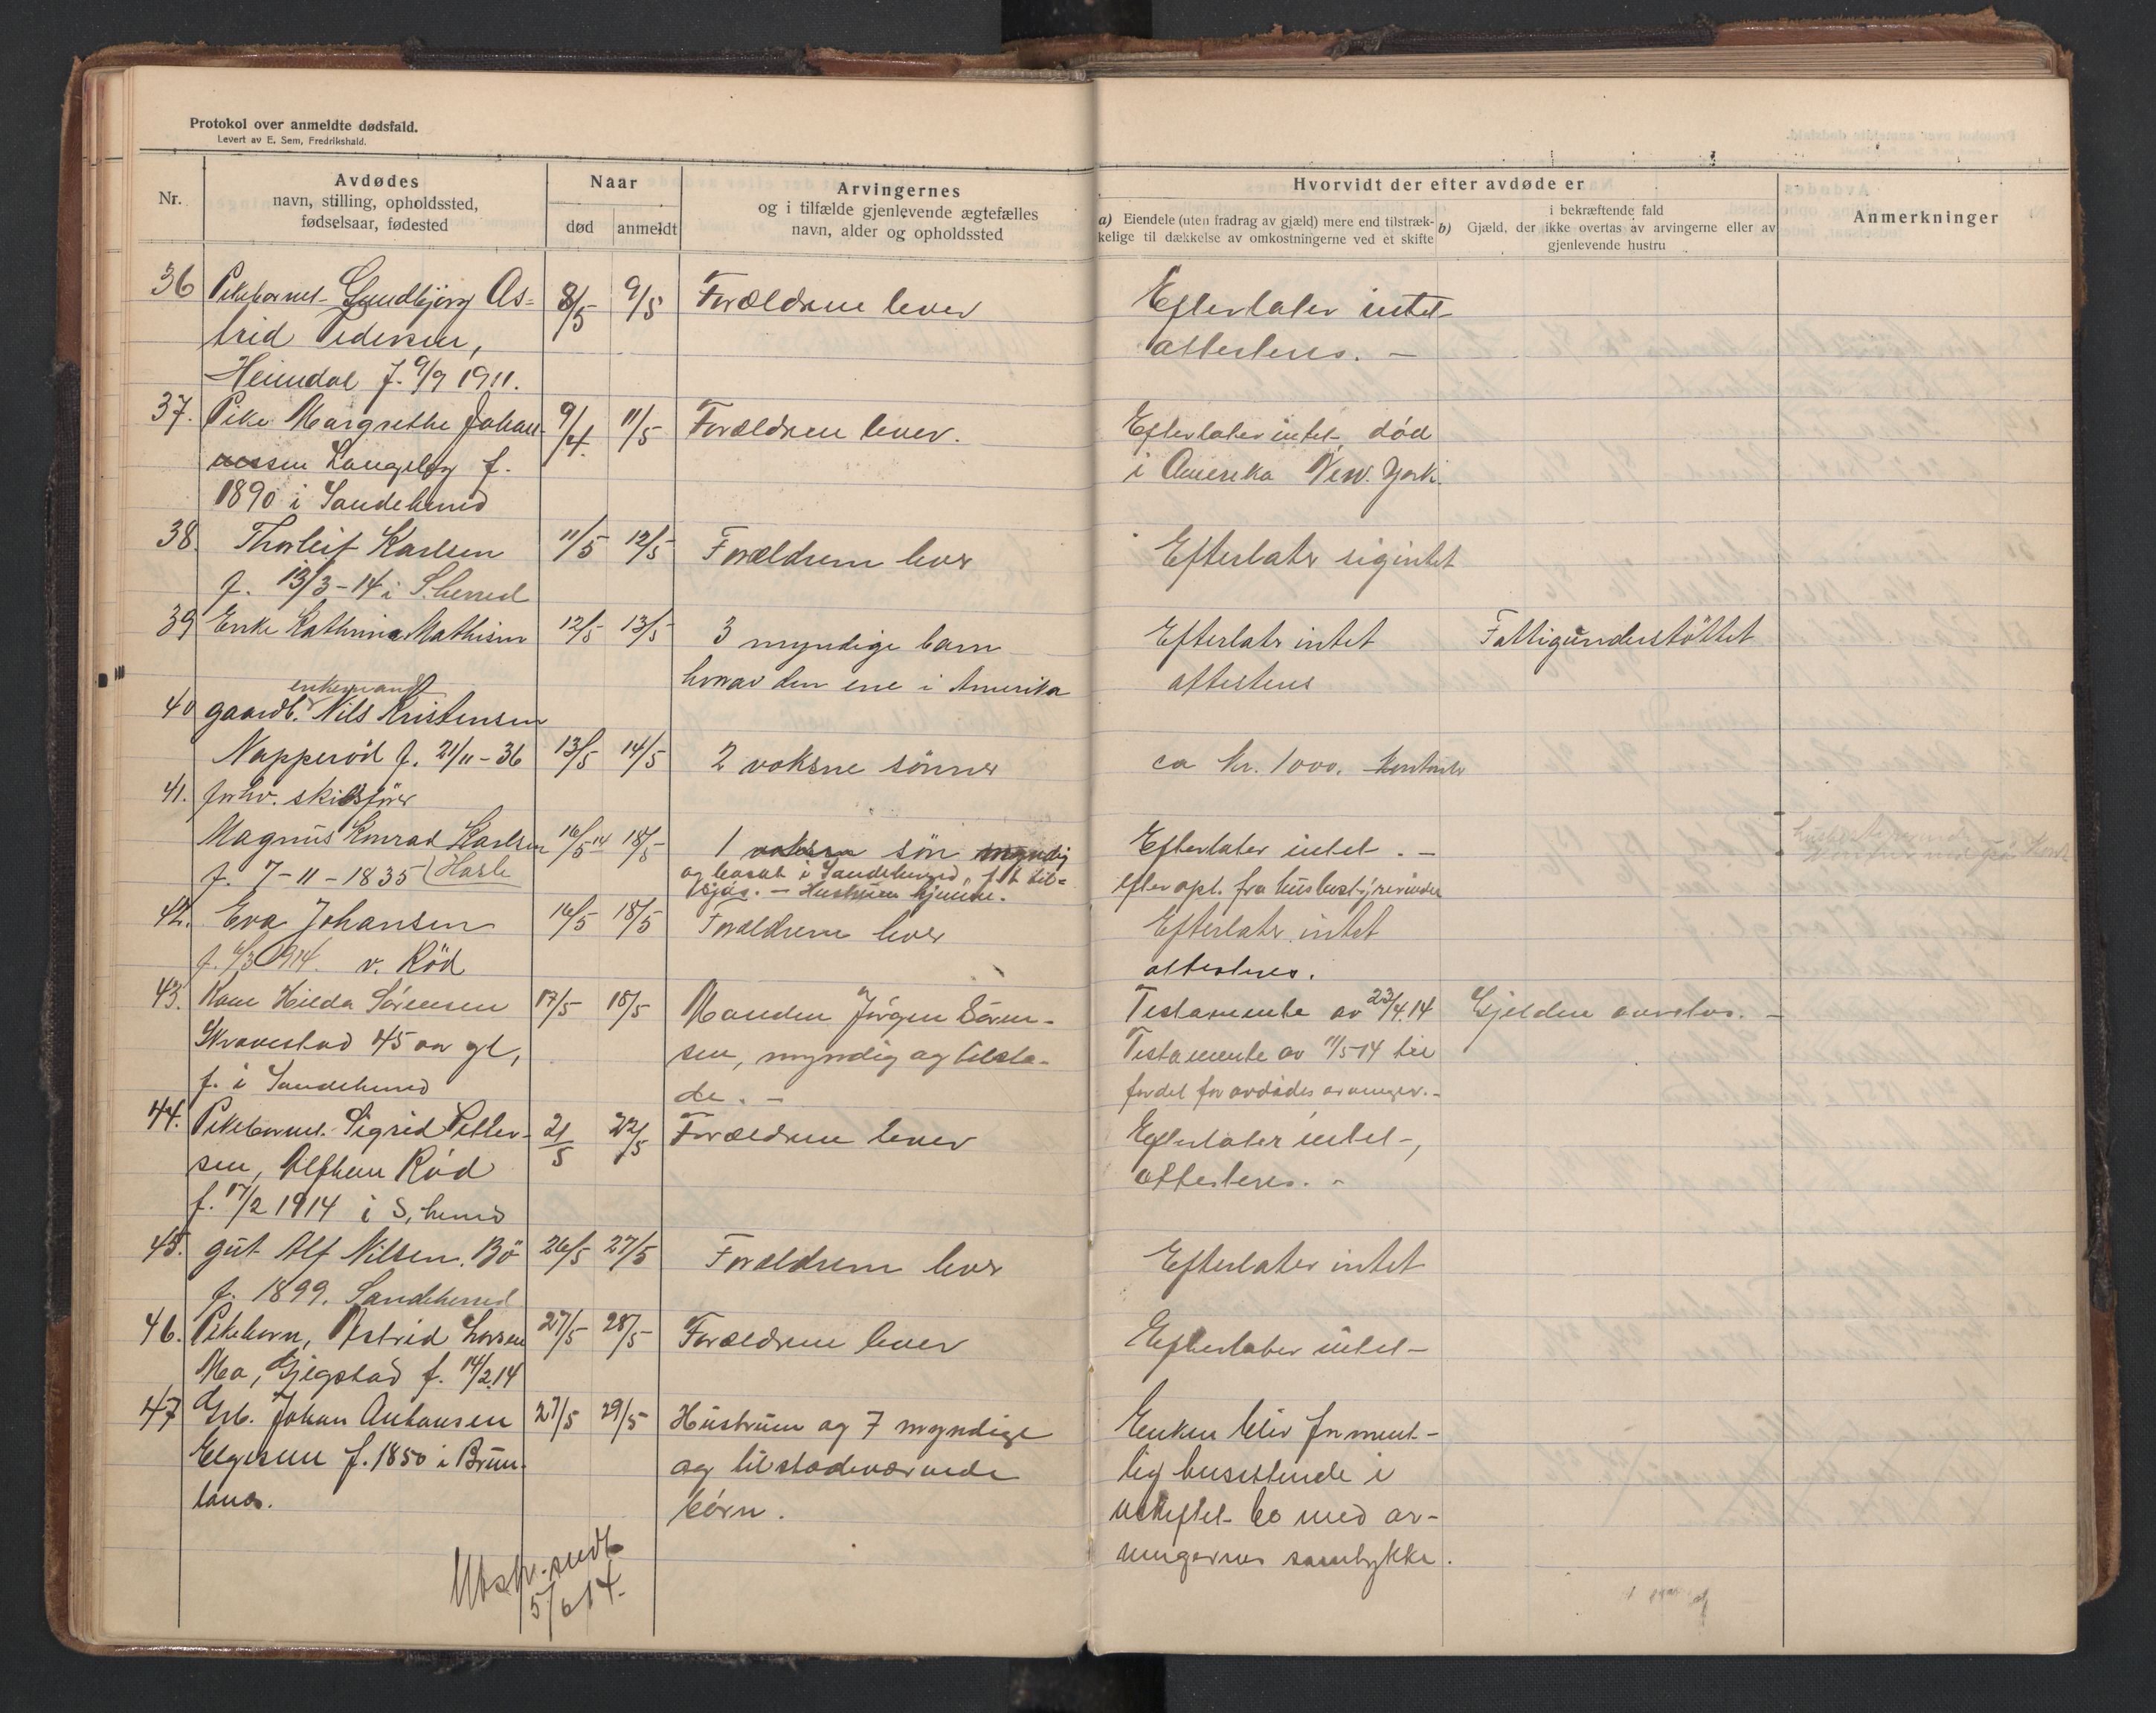 Protokol over anmeldte dødsfald.
Levert av E. Sem, Fredrikshald.
Nr.
Avdødes
navn, stilling, opholdssted,
fødselsaar, fødested
Naar
død
anmeldt
Arvingernes
og i tilfælde gjenlevende ægtefælles
navn, alder og opholdssted
Hvorvidt der efter avdøde er
a) Eiendele (uten fradrag av gjæld) mere end tilstræk-
kelige til dækkelse av omkostningerne ved et skifte
i bekræftende fald
b) Gjæld, der ikke overtas av arvingerne eller av
gjenlevende hustru
Anmerkninger
36 Pikebarnet Gundbjørg As- 8/5 9/5 Forældrene lever Efterlater intet
trid Pedersen, attesteres. -
Heimdal f. 9/9 1911.
37. Pike Margrethe Johan- 9/4. 11/5 Forældrene lever. Efterlater intet, død
nessen Langeby f. i Amerika New. York.
1890 i Sandeherred
38. Thorleif Karlsen 11/5 12/5 Forældrene lever Efterlater sig intet
f. 13/3-14 i S.herred
39 Enke Kathrine Mathisen 12/5 13/5 3 myndige barn Efterlater intet Fattigunderstöttet
hvorav den ene i Amerika attesteres
enkemand
40 gaardb. Nils Kristensen
Napperöd f. 21/11-36 13/5 14/5 2 voksne sönner ca kr. 1000.
41. forhv. skibsförer
Magnus Konrad Karlsen 16/5 14 18/5 1 voksen sön myndig Efterlater intet. -
f. 7-11-1835 (Hasle og bosat i Sandeherred, f.t. til-
sjös. - Hustruen efter opl. fra husbestyrerinden
42. Eva Johansen 16/5 18/5 Forældrene lever Efterlater intet
1914. v. Röd attesteres.
43. Kone Hilda Sørensen 17/5 18/5 Manden Jørgen Søren- Testamente av 23/4.14 Gjelden overtas. -
Skravestad 45 aar gl, sen, myndig og tilste- Testamente av 11/5 14 til
f. i Sandeherred de. - fordel for avdødes arvinger. -
44. Pikebarnet Sigrid Petter- 21/5 22/5 Forældrene lever Efterlater intet,
sen, Alfheim Rød attesteres. -
f. 17/2 1914 i S, herred
45. gut Alf Nilsen. Bö 26/5 27/5 Forældrene lever Efterlater intet
f. 1899. Sandeherred
46. Pikebarn, Astrid Larsen 27/5 28/5 Forældrene lever Efterlater intet
Mo, Gjegstad f. 14/2.14
47 Grb. Johan Antonsen 27/5 29/5 Hustruen og 7 myndige Enken blir forment-
Elgesem f. 1850 i Brun- og tilstedeværende lig besittende i
lanes. børn. uskiftet bo med ar-
vingernes samtykke.
Utskr. sendt
5/6 14.